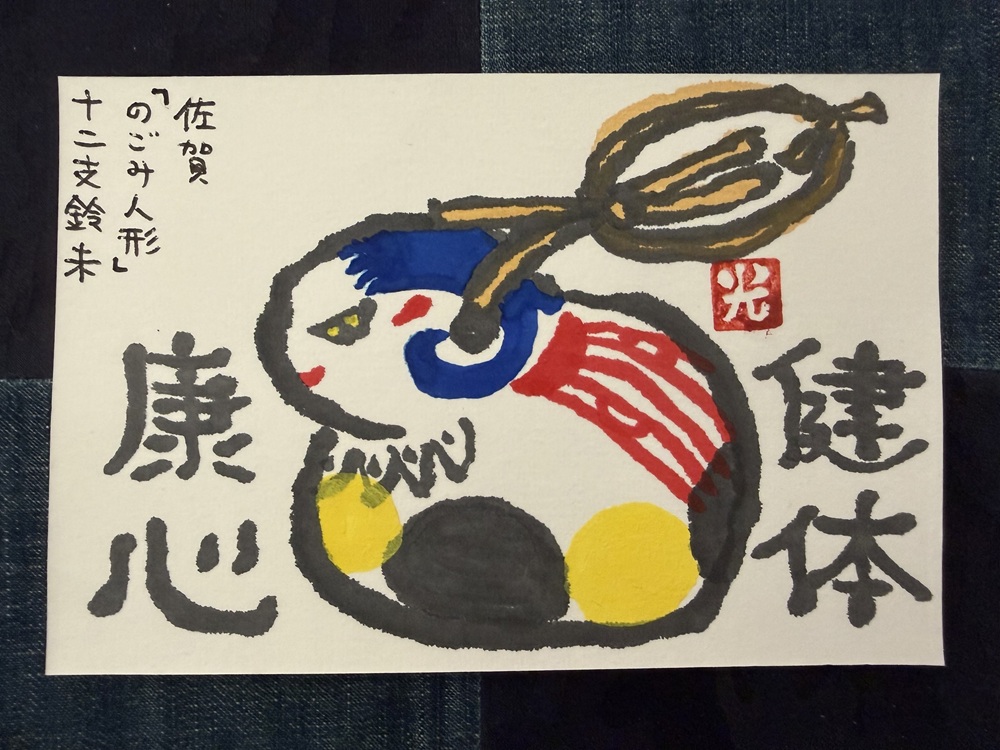 佐賀
「のごみ人形」
十二支鈴未
健体
康心
光